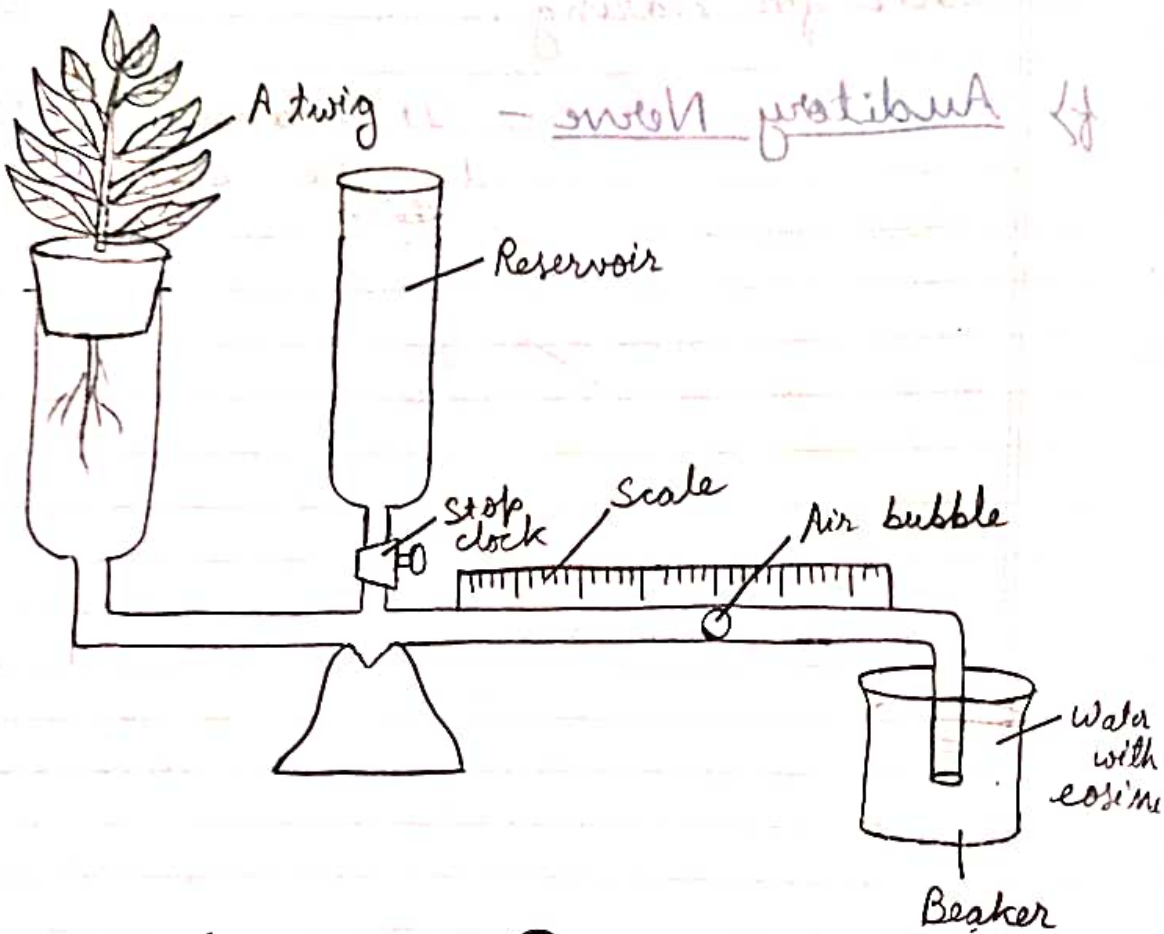 f) Auditory Nerve -
A twig
Reservoir
Stop
clock
Scale
Air bubble
Water
with
eosine
Beaker